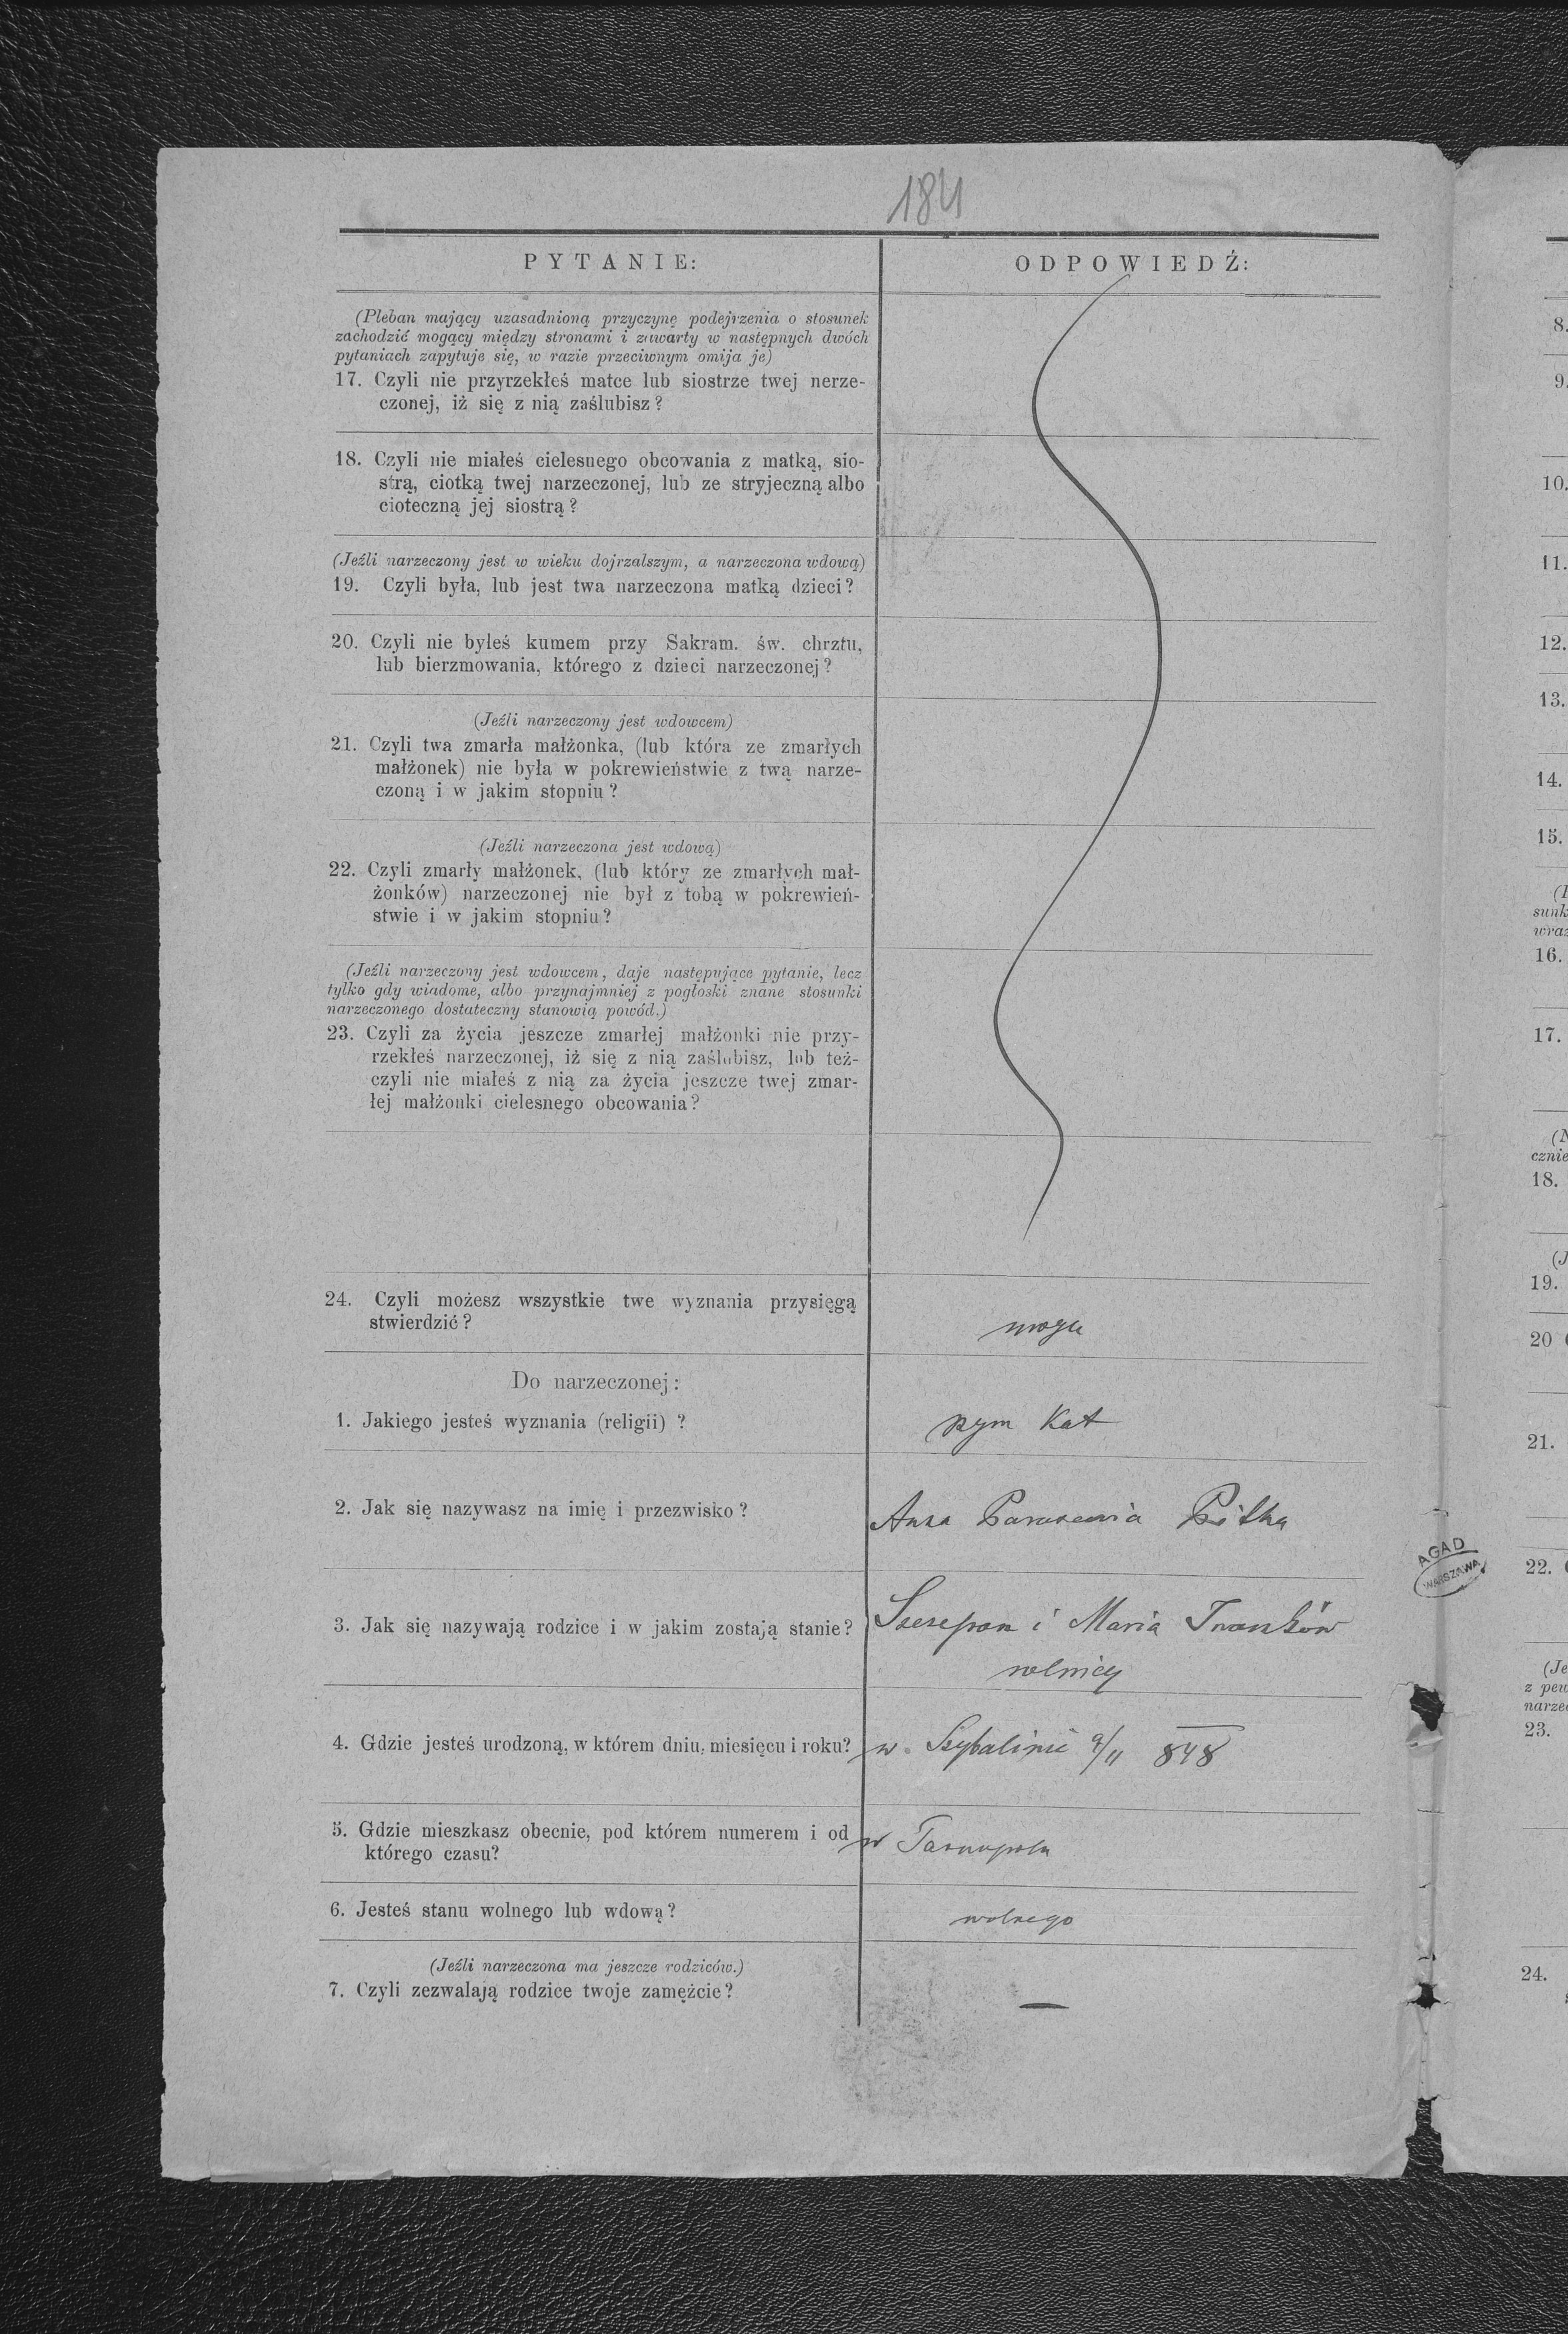 184
PYTANIE:
ODPOWIEDŹ:
(Pleban mający uzasadnioną przyczynę podejrzenia o stosunek
zachodzić mogący między stronami i zawarty w następnych dwóch
pytaniach zapytuje się, w razie przeciwnym omija je)
17. Czyli nie przyrzekłeś matce lub siostrze twej nerze-
czonej, iż się z nią zaślubisz?
18. Czyli nie miałeś cielesnego obcowania z matką, sio-
strą, ciotką twej narzeczonej, lub ze stryjeczną albo
cioteczną jej siostrą?
(Jeźli narzeczony jest w wieku dojrzalszym, a narzeczona wdową)
19. Czyli była, lub jest twa narzeczona matką dzieci?
20. Czyli nie byłeś kumem przy Sakram. św. chrztu,
lub bierzmowania, którego z dzieci narzeczonej?
(Jeźli narzeczony jest wdowcem)
21. Czyli twa zmarła małżonka, (lub która ze zmarłych
małżonek) nie była w pokrewieństwie z twą narze-
czoną i w jakim stopniu?
(Jeźli narzeczona jest wdową)
22. Czyli zmarły małżonek, (lub który ze zmarłych mał-
żonków) narzeczonej nie był z tobą w pokrewień-
stwie i w jakim stopniu?
(Jeźli narzeczony jest wdowcem, daje następujące pytanie, lecz
tylko gdy wiadome, albo przynajmniej z pogłoski znane stosunki
narzeczonego dostateczny stanowią powód.)
23. Czyli za życia jeszcze zmarłej małżonki nie przy-
rzekłeś narzeczonej, iż się z nią zaślubisz, lub też-
czyli nie miałeś z nią za życia jeszcze twej zmar-
łej małżonki cielesnego obcowania?
24. Czyli możesz wszystkie twe wyznania przysięgą
stwierdzić?
mogę
Do narzeczonej:
1. Jakiego jesteś wyznania (religii) ?
rzym Kat
2. Jak się nazywasz na imię i przezwisko?
Anna
3. Jak się nazywają rodzice i w jakim zostają stanie?
Szczepan i Maria Iwanków
rolnicy
4. Gdzie jesteś urodzoną, w którem dniu, miesięcu i roku?
w Szybalinie 9/11 848
5. Gdzie mieszkasz obecnie, pod którem numerem i od
którego czasu?
w Tarnopolu
6. Jesteś stanu wolnego lub wdową?
wolnego
(Jeźli narzeczona ma jeszcze rodziców.)
7. Czyli zezwalają rodzice twoje zamężcie?
—
AGAD
WARSZAWA
8.
9.
10.
11.
12.
13.
14.
15.
16.
17.
18.
19.
20
21.
22.
23.
24.